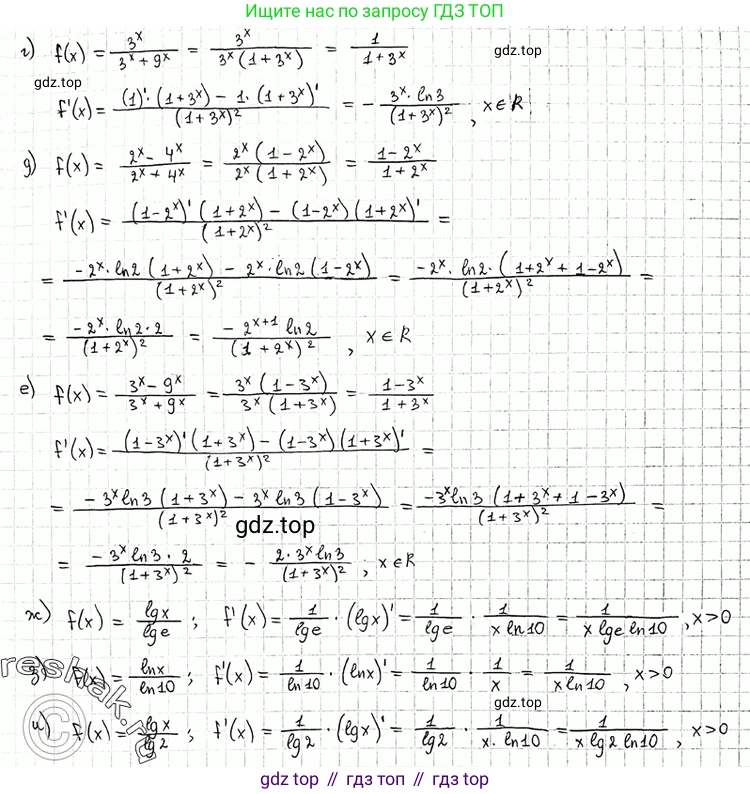 Ищите нас по запросу ГДЗ ТОП
г) f(x) = 3^x/(3^x + 9^x) = 3^x/(3^x (1 + 3^x)) = 1/(1 + 3^x)
gdz.top
gdz.top
f'(x) = ((1)' · (1 + 3^x) − 1 · (1 + 3^x)')/(1 + 3^x)^2 = − (3^x · ln3)/(1 + 3^x)^2 , x ∈ R
д) f(x) = (2^x − 4^x)/(2^x + 4^x) = (2^x (1 − 2^x))/(2^x (1 + 2^x)) = (1 − 2^x)/(1 + 2^x)
f'(x) = ((1 − 2^x)' (1 + 2^x) − (1 − 2^x) (1 + 2^x)')/(1 + 2^x)^2 =
= (−2^x · ln2 (1 + 2^x) − 2^x · ln2 (1 − 2^x))/(1 + 2^x)^2 = (−2^x · ln2 · (1 + 2^x + 1 − 2^x))/(1 + 2^x)^2 =
= (−2^x · ln2 · 2)/(1 + 2^x)^2 = (−2^(x+1) ln2)/(1 + 2^x)^2 , x ∈ R
е) f(x) = (3^x − 9^x)/(3^x + 9^x) = (3^x (1 − 3^x))/(3^x (1 + 3^x)) = (1 − 3^x)/(1 + 3^x)
f'(x) = ((1 − 3^x)' (1 + 3^x) − (1 − 3^x) (1 + 3^x)')/(1 + 3^x)^2 =
= (−3^x ln3 (1 + 3^x) − 3^x ln3 (1 − 3^x))/(1 + 3^x)^2 = (−3^x ln3 (1 + 3^x + 1 − 3^x))/(1 + 3^x)^2 =
gdz.top
= (−3^x ln3 · 2)/(1 + 3^x)^2 = − (2 · 3^x ln3)/(1 + 3^x)^2 ; x ∈ R
ж) f(x) = lgx/lge ; f'(x) = 1/lge · (lgx)' = 1/lge · 1/(x ln10) = 1/(x lge ln10) , x > 0
з) f(x) = lnx/ln10 ; f'(x) = 1/ln10 · (lnx)' = 1/ln10 · 1/x = 1/(x ln10) , x > 0
gdz.top
и) f(x) = lgx/lg2 ; f'(x) = 1/lg2 · (lgx)' = 1/lg2 · 1/(x · ln10) = 1/(x lg2 ln10) , x > 0
reshak.ru
©
gdz top // гдз топ // gdz top